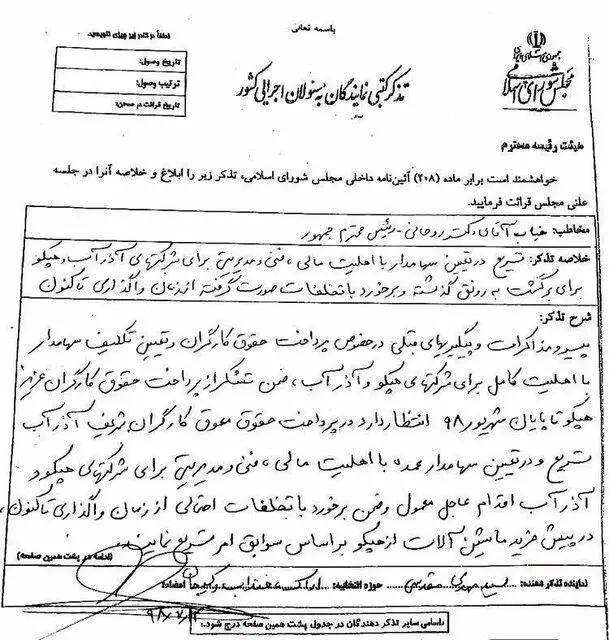 باسمه تعالی
لطفاً در کادر زیر چیزی ننویسید.
جمهوری اسلامی ایران
مجلس شورای اسلامی
تاریخ وصول:
ترتیب وصول:
تاریخ قرائت در صحن:
تذکر کتبی نمایندگان به مسئولان اجرائی کشور
هیئت رئیسه محترم
خواهشمند است برابر ماده (۲۰۸) آئین‌نامه داخلی مجلس شورای اسلامی، تذکر زیر را ابلاغ و خلاصه آنرا در جلسه
علنی مجلس قرائت فرمایید.
مخاطب: جناب آقای دکتر روحانی - رئیس محترم جمهور
خلاصه تذکر: تسریع در تعیین سهامدار با اهلیت مالی، فنی و مدیریتی برای شرکتهای آذرآب و هپکو
برای برگشت به رونق گذشته و برخورد با تخلفات صورت گرفته از زمان واگذاری تاکنون
شرح تذکر:
پیرو مذاکرات و پیگیریهای قبلی در خصوص پرداخت حقوق کارگران و تعیین تکلیف سهامدار
با اهلیت کامل برای شرکتهای هپکو و آذرآب، ضمن تشکر از پرداخت حقوق کارگران عزیز
هپکو تا پایان شهریور ۹۸ انتظار دارد در پرداخت حقوق معوق کارگران شریف آذرآب
تسریع و در تعیین سهامدار عمده با اهلیت مالی، فنی و مدیریتی برای شرکتهای هپکو و
آذرآب اقدام عاجل معمول و ضمن برخورد با تخلفات احتمالی از زمان واگذاری تاکنون،
در پیش خرید ماشین آلات از هپکو براساس سوابق امر تسریع نمایند.
(ادامه در پشت همین صفحه)
نماینده تذکر دهنده: سید مهدی مقدسی حوزه انتخابیه: اراک امضاء:
۹۸/۷/
(اسامی سایر تذکر دهندگان در جدول پشت همین صفحه درج شود.)